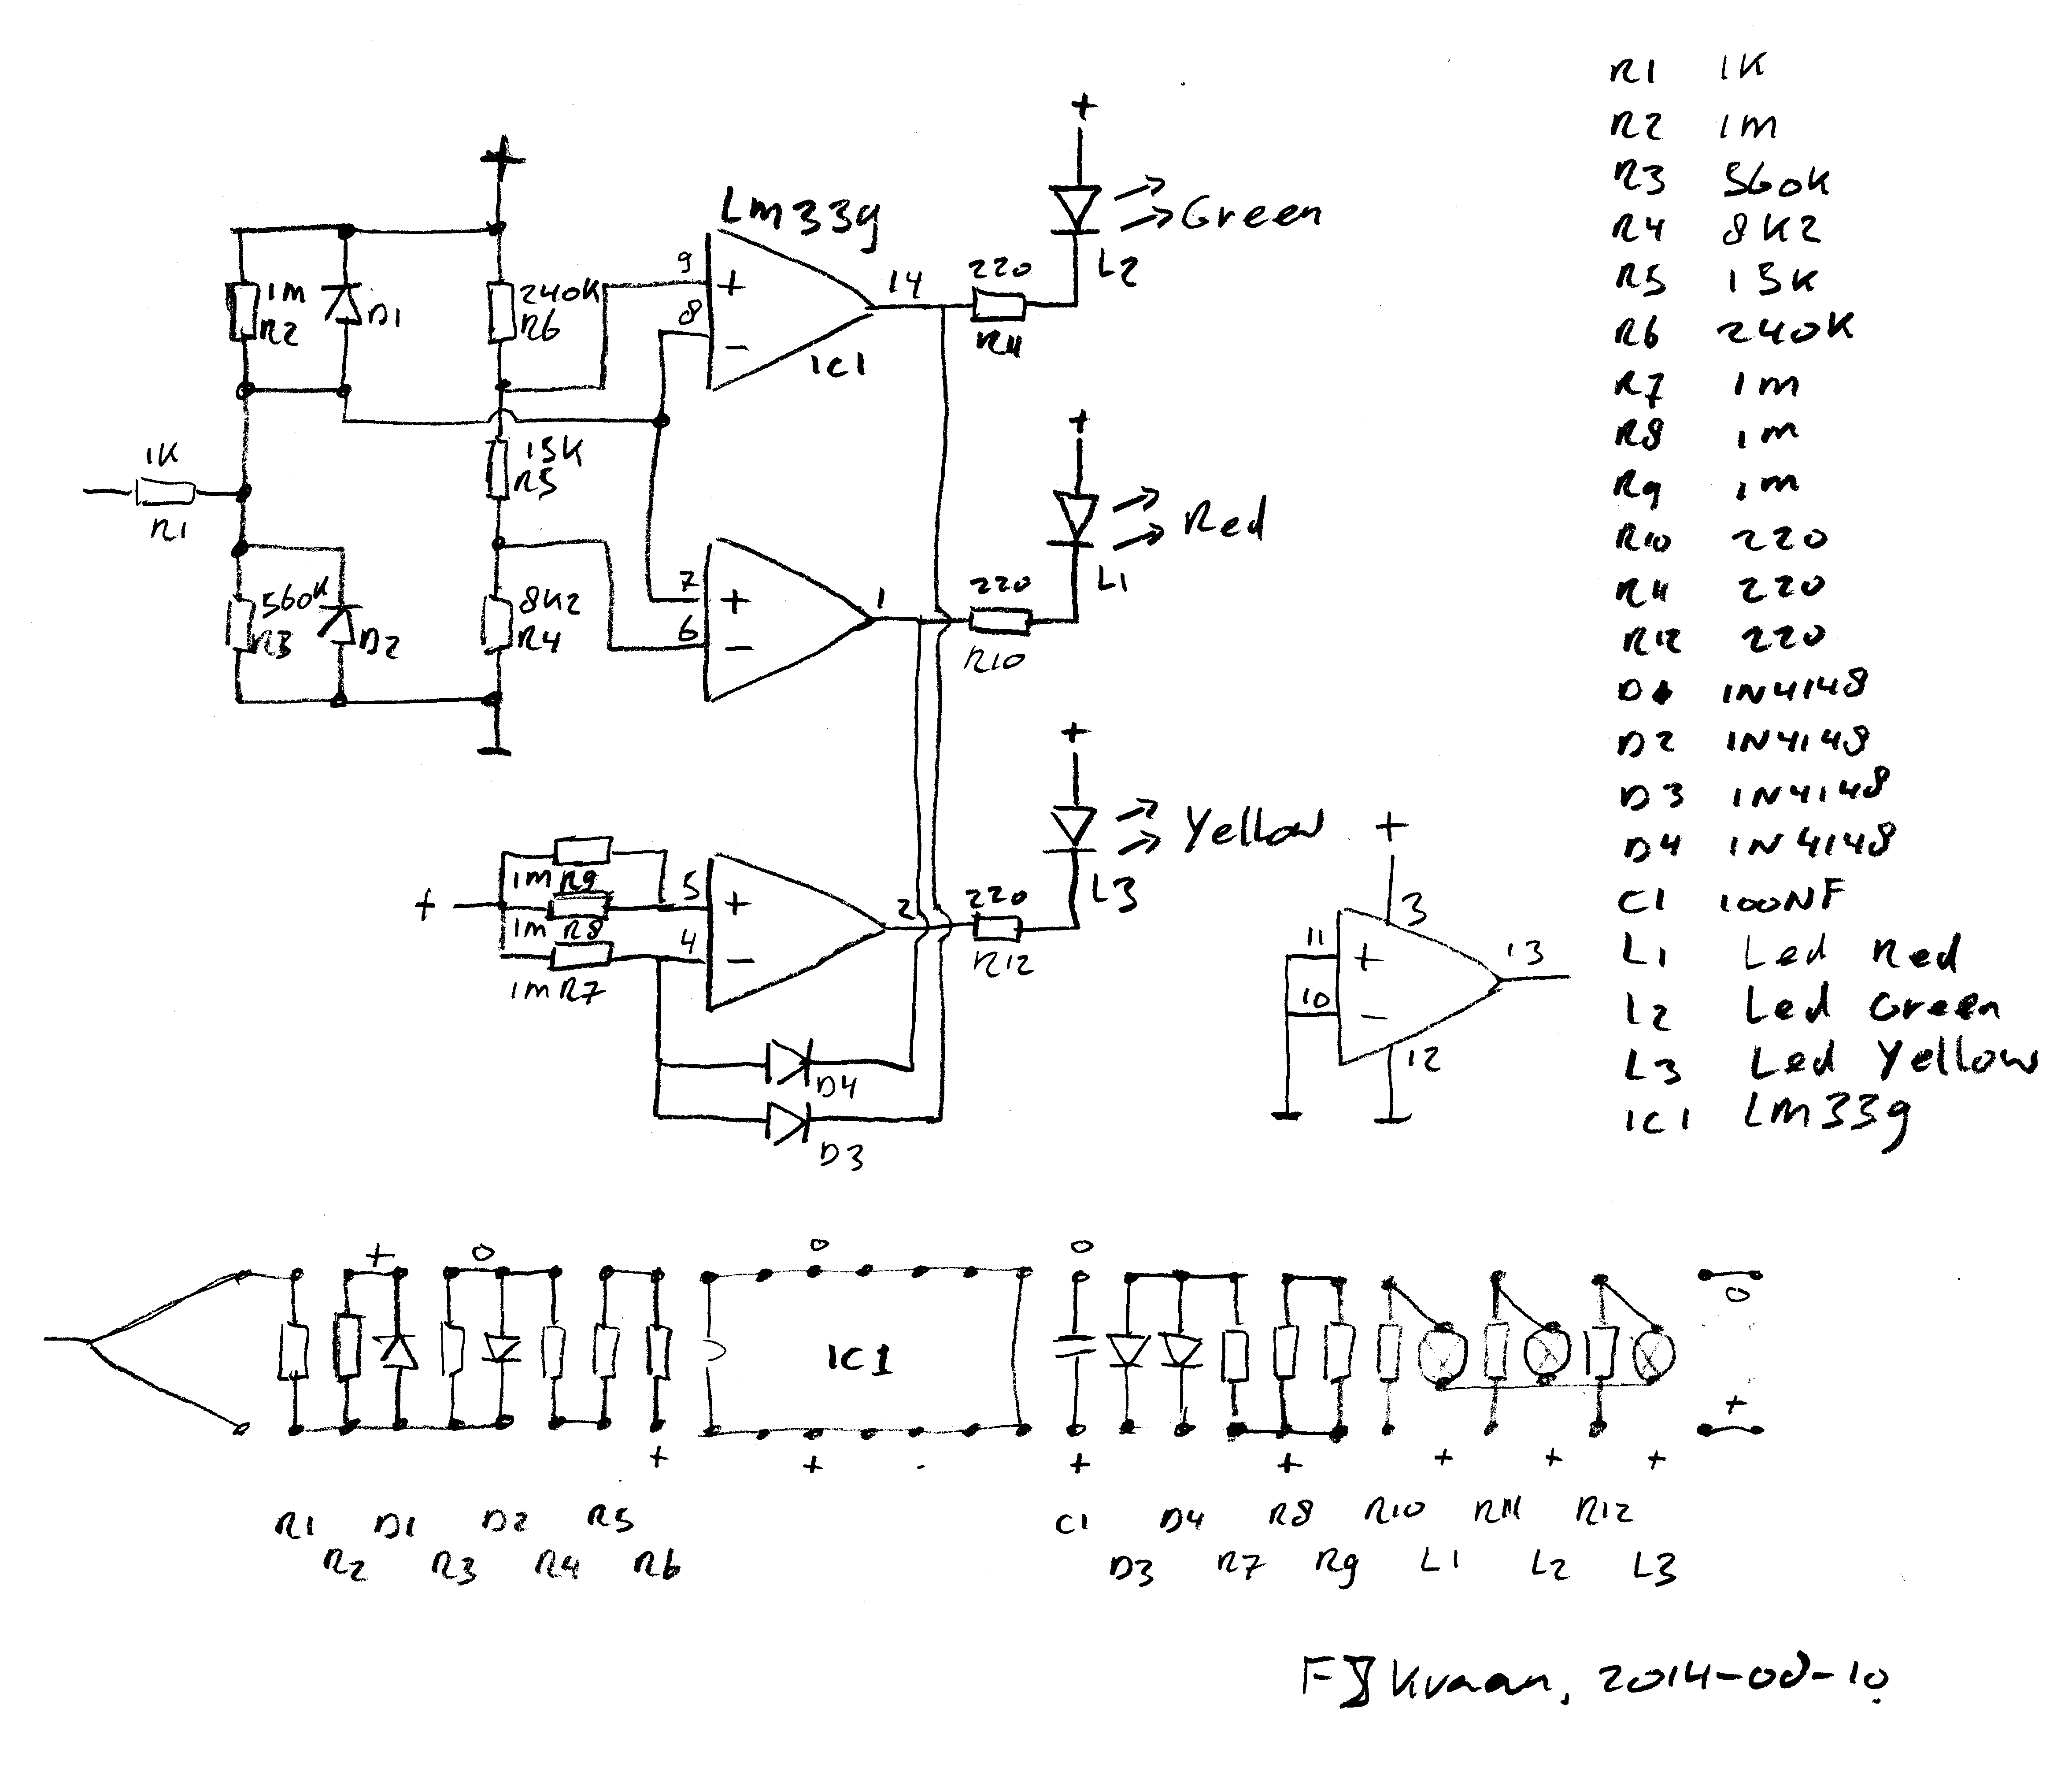 +
+
LM339
Green
L2
1M
R2
D1
240K
R6
9
8
+
-
14
220
R11
IC1
+
1K
R1
15K
R5
Red
L1
560K
R3
D2
8K2
R4
7
6
+
-
1
220
R10
+
Yellow
L3
+
1M R9
1M R8
1M R7
5
4
+
-
2
220
R12
D4
D3
+
3
11
10
+
-
13
12
R1 1K
R2 1M
R3 560K
R4 8K2
R5 15K
R6 240K
R7 1M
R8 1M
R9 1M
R10 220
R11 220
R12 220
D1 1N4148
D2 1N4148
D3 1N4148
D4 1N4148
C1 100NF
L1 Led Red
L2 Led Green
L3 Led Yellow
IC1 LM339
+ 0 0 0 0
IC1
+
+ + - + + + + +
R1 D1 D2 R5 C1 D4 R8 R10 R11 R12
R2 R3 R4 R6 D3 R7 R9 L1 L2 L3
FJ Kraan, 2014-08-10